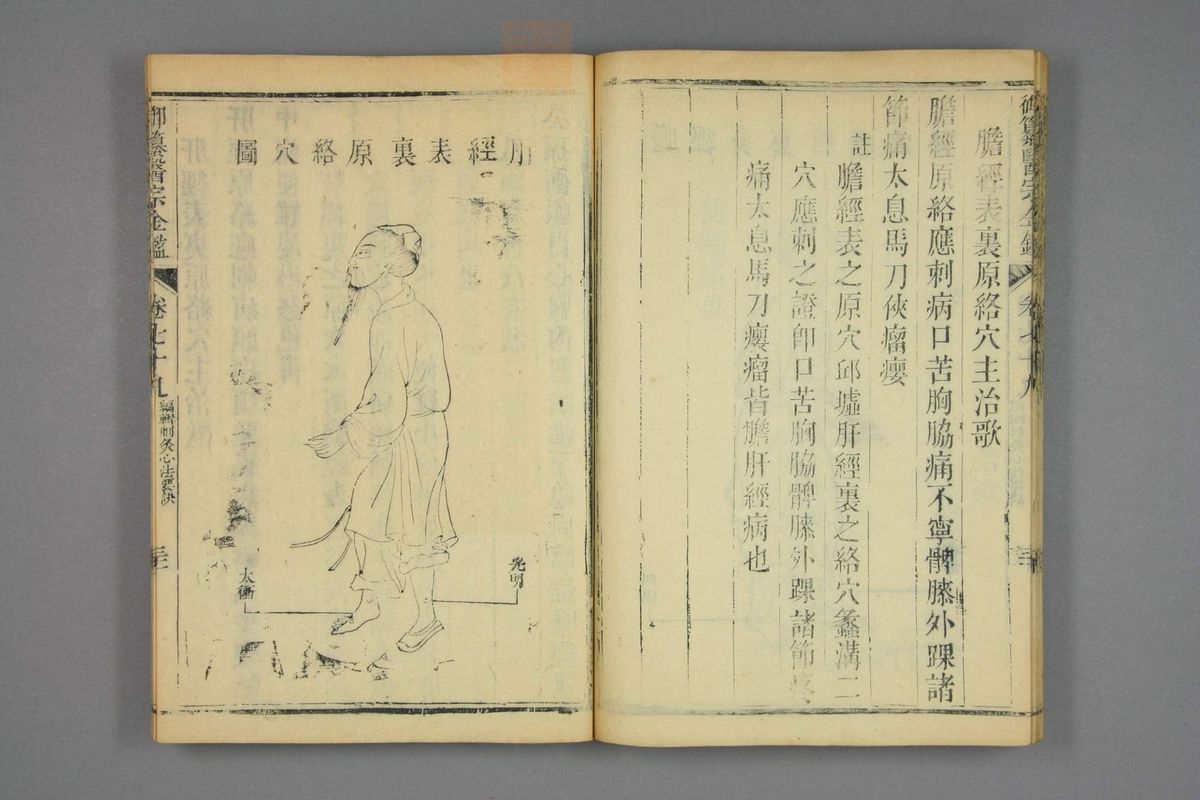 膽經表裏原絡穴主治歌
膽經原絡應刺病口苦胸脇痛不寧髀膝外踝諸
節痛太息馬刀俠瘤癭
註
膽經表之原穴邱墟肝經裏之絡穴蠡溝二
穴應刺之證卽口苦胸脇髀膝外踝諸節疼
痛太息馬刀癭瘤皆膽肝經病也
卷七十九
肝經表裏原絡穴圖
光明
太衝
御纂醫宗金鑑
卷七十九
編輯刺灸心法要訣